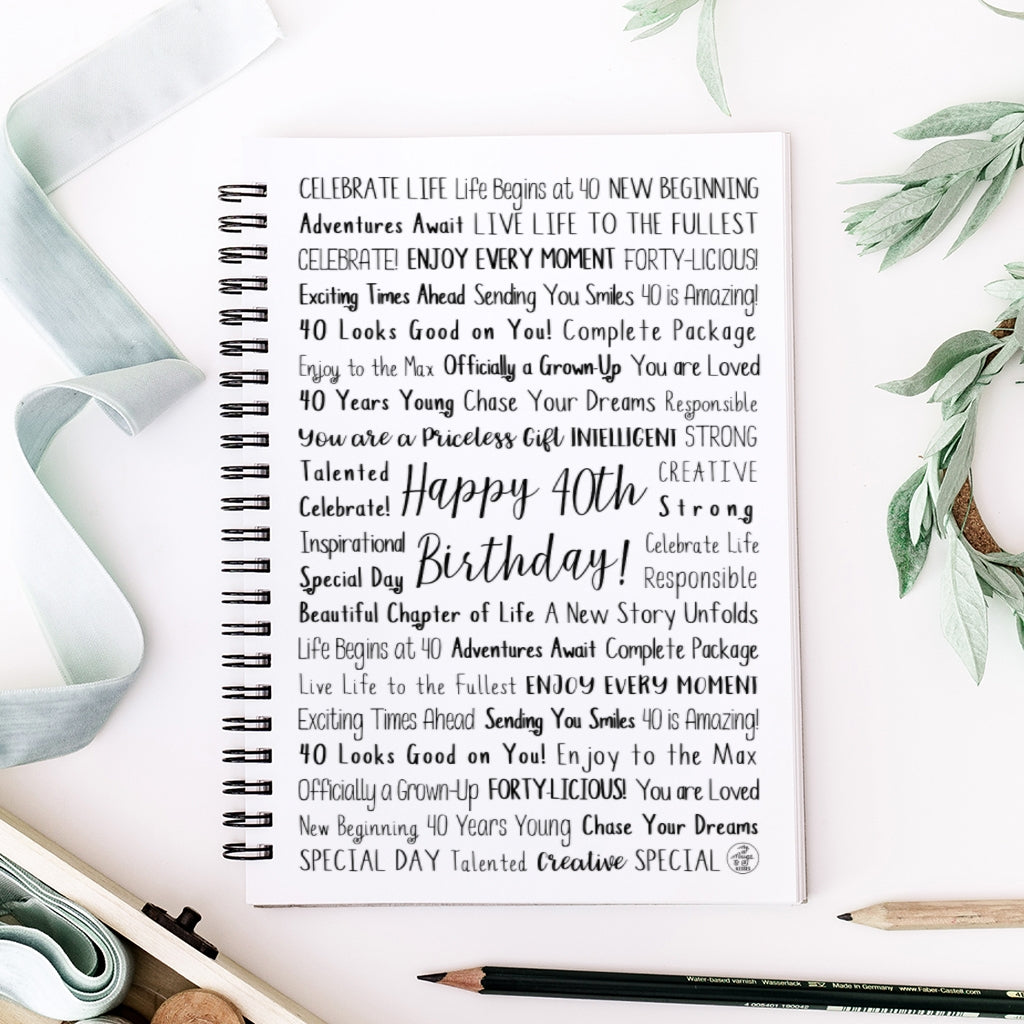 CELEBRATE LIFE Life Begins at 40 NEW BEGINNING
Adventures Await LIVE LIFE TO THE FULLEST
CELEBRATE! ENJOY EVERY MOMENT FORTY-LICIOUS!
Exciting Times Ahead Sending You Smiles 40 is Amazing!
40 Looks Good on You! Complete Package
Enjoy to the Max Officially a Grown-Up You are Loved
40 Years Young Chase Your Dreams Responsible
You are a Priceless Gift INTELLIGENT STRONG
Talented
Celebrate!
Happy 40th
CREATIVE
Strong
Inspirational
Special Day
Birthday!
Celebrate Life
Responsible
Beautiful Chapter of Life A New Story Unfolds
Life Begins at 40 Adventures Await Complete Package
Live Life to the Fullest ENJOY EVERY MOMENT
Exciting Times Ahead Sending You Smiles 40 is Amazing!
40 Looks Good on You! Enjoy to the Max
Officially a Grown-Up FORTY-LICIOUS! You are Loved
New Beginning 40 Years Young Chase Your Dreams
SPECIAL DAY Talented Creative SPECIAL
Water-based varnish Wasserlack Made in Germany www.Faber-Castell.com